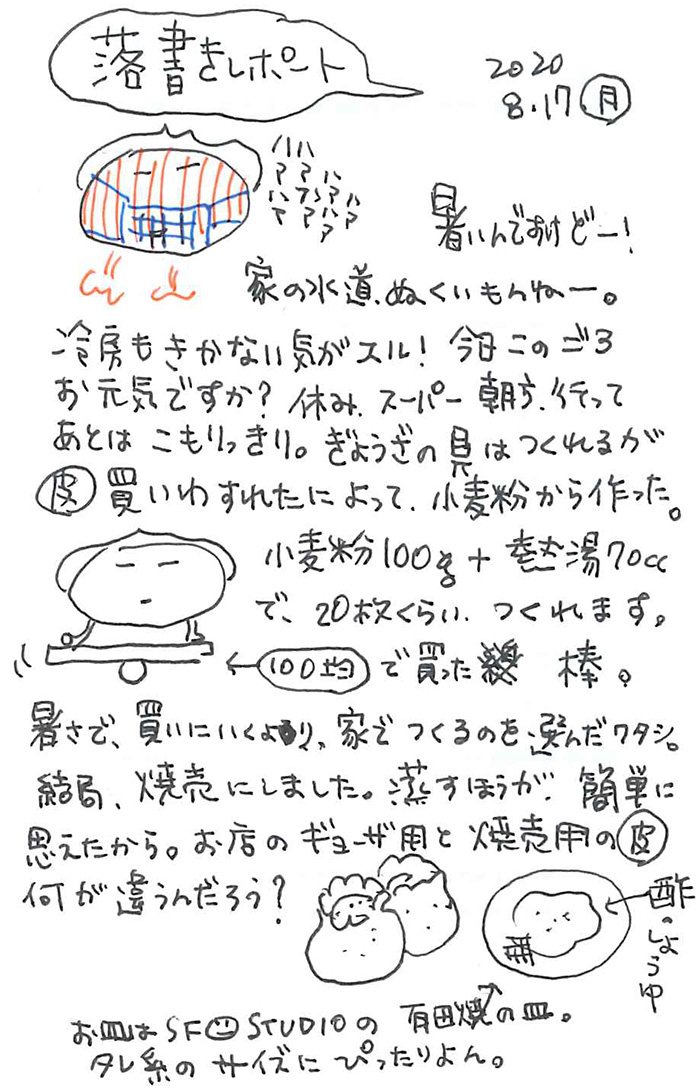 落書きレポート
2020
8.17 月
ハハハハハ
アアアアア
暑いんですけどー!
家の水道、ぬくいもんねー。
冷房もきかない気がスル! 今日このごろ
お元気ですか? 休み、スーパー朝方、行って
あとは こもりっきり。ぎょうざの具はつくれるが
皮 買いわすれたによって、小麦粉から作った。
小麦粉100g+熱湯70cc
で、20枚くらい、つくれます。
←100均で買った 棒。
暑さで、買いにいくより、家でつくるのを選んだワタシ。
結局、焼売にしました。蒸すほうが、簡単に
思えたから。お店のギョーザ用と焼売用の皮
何が違うんだろう?
酢のしょうゆ
お皿はSF STUDIOの 有田焼の皿。
タレ系のサイズにぴったりよん。